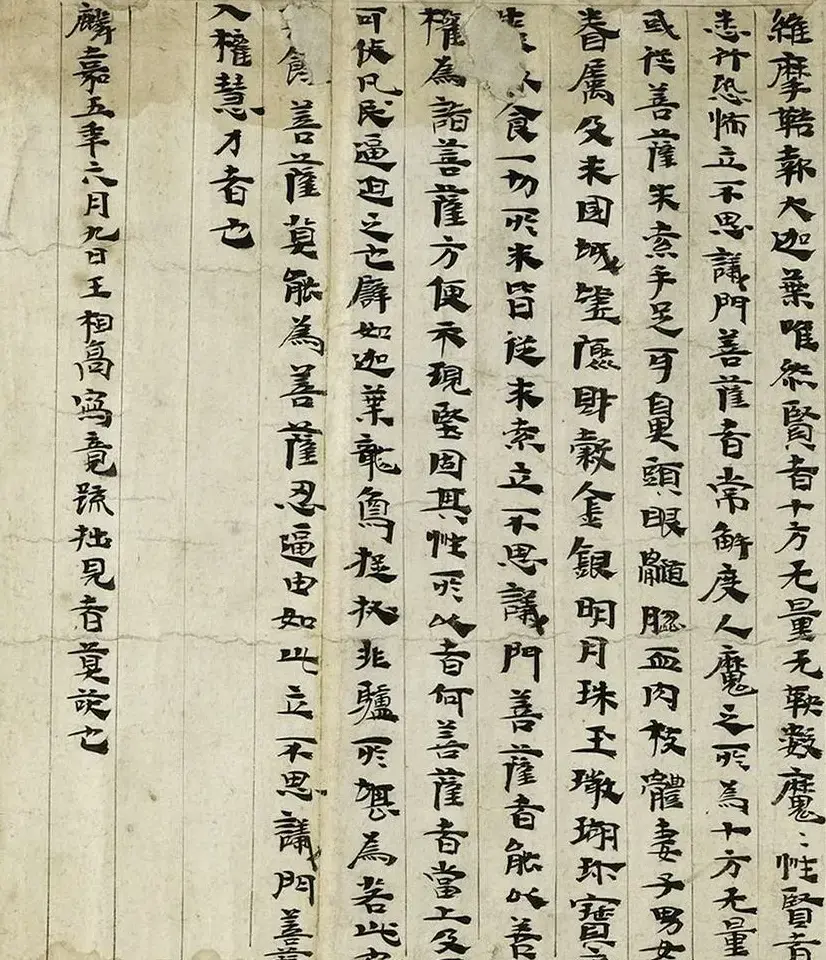 維摩詰報大迦葉唯然賢者十方无量无鞅數魔〻性賢者
恚行恐怖立不思議門菩薩者常解度人魔之所為十方无量
或從菩薩求索手足耳鼻頭眼髓𦛁血肉枝體妻子男女
眷属及求國城墟聚財穀金銀明月珠玉珊瑚珎寶
食一切所求皆從求索立不思議門菩薩者能以善
權為諸菩薩方便示現堅固其性所以者何菩薩者當上及
可使凡民逼迫之也譬如迦葉龍鳥捉披非驢所堪為若此
食菩薩莫能為菩薩忍逼由如此立不思議門菩
入權慧才者也
麟嘉五年六月九日王相高寫竟疏拙見者莫㗛也